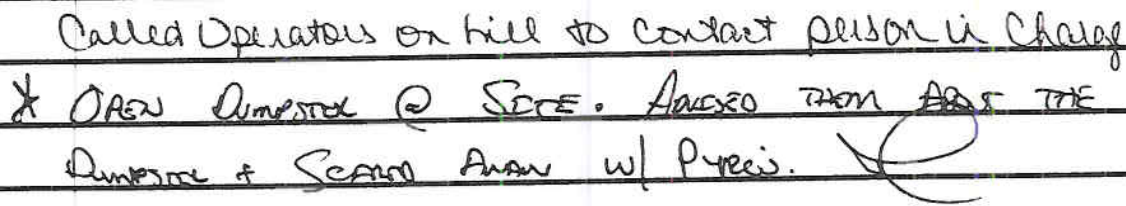 Called Operators on hill to contact person in Charge
* OPEN DUMPSTER @ SITE. ADVISED THEM ABOUT THE
DUMPSTER + AWAY w/